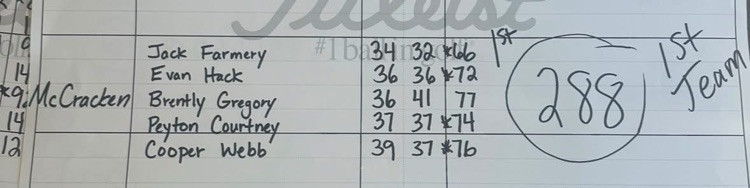 Titleist
#1ballingolf
9
14
*9
14
12
Jack Farmery 34 32 *66 1st
Evan Hack 36 36 *72
McCracken Brently Gregory 36 41 77
Peyton Courtney 37 37 *74
Cooper Webb 39 37 *76
288
1st Team